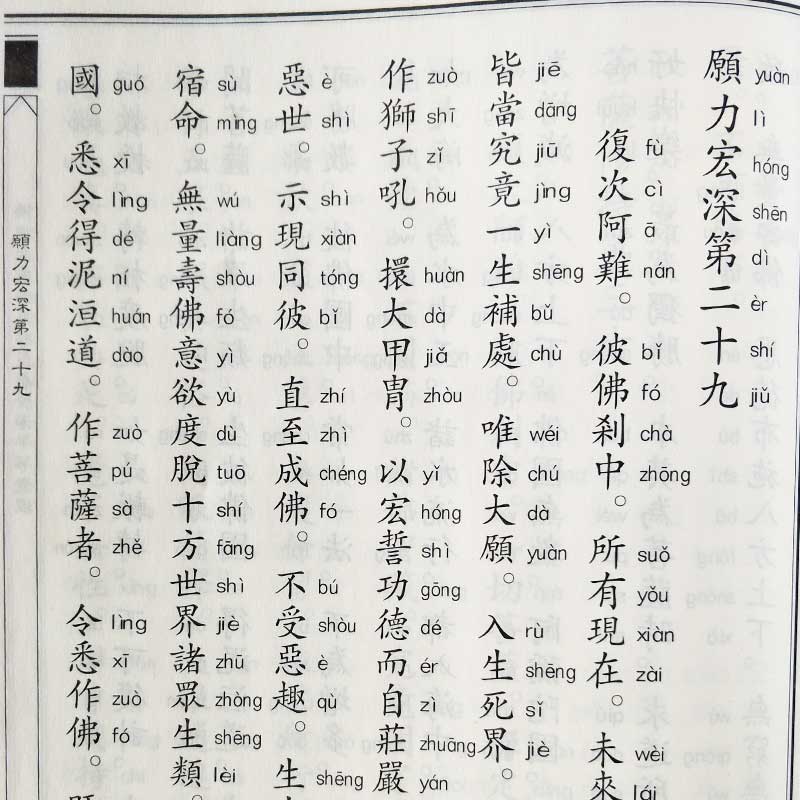 願力宏深第二十九
yuàn lì hóng shēn dì èr shí jiǔ
復次阿難。彼佛剎中。所有現在。未來
fù cì ā nán bǐ fó chà zhōng suǒ yǒu xiàn zài wèi lái
皆當究竟一生補處。唯除大願。入生死界。
jiē dāng jiū jìng yì shēng bǔ chù wéi chú dà yuàn rù shēng sǐ jiè
作獅子吼。擐大甲冑。以宏誓功德而自莊嚴
zuò shī zǐ hǒu huàn dà jiǎ zhòu yǐ hóng shì gōng dé ér zì zhuāng yán
惡世。示現同彼。直至成佛。不受惡趣。生
è shì shì xiàn tóng bǐ zhí zhì chéng fó bú shòu è qù shēng
宿命。無量壽佛意欲度脫十方世界諸眾生類。
sù mìng wú liàng shòu fó yì yù dù tuō shí fāng shì jiè zhū zhòng shēng lèi
國。悉令得泥洹道。作菩薩者。令悉作佛。
guó xī lìng dé ní huán dào zuò pú sà zhě lìng xī zuò fó
願力宏深第二十九